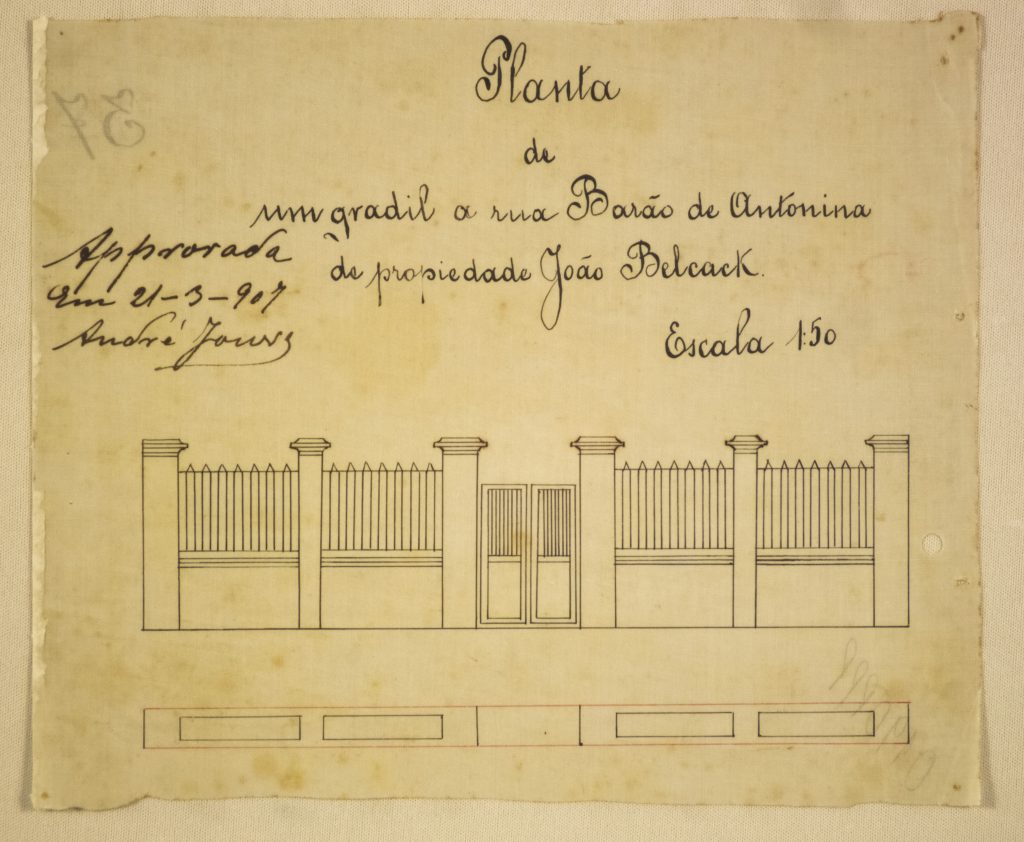 Planta
de
um gradil a rua Barão de Antonina
de propiedade João Belcack.
Escala 1:50
Approvada
Em 21-3-907
André
37